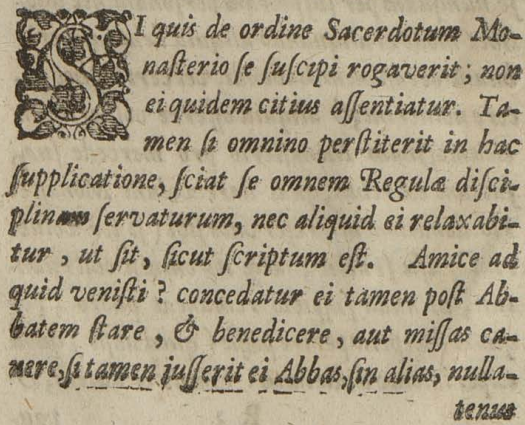 SI quis de ordine Sacerdotum Mo-
naſterio ſe ſuſcipi rogaverit; non
ei quidem citius aſſentiatur. Ta-
men ſi omnino perſtiterit in hac
ſupplicatione, ſciat ſe omnem Regulæ diſci-
plinam ſervaturum, nec aliquid ei relaxabi-
tur, ut ſit, ſicut ſcriptum eſt. Amice ad
quid veniſti? concedatur ei tamen poſt Ab-
batem ſtare, & benedicere, aut miſſas ca-
nere, ſi tamen juſſerit ei Abbas, ſin alias, nulla-
tenus